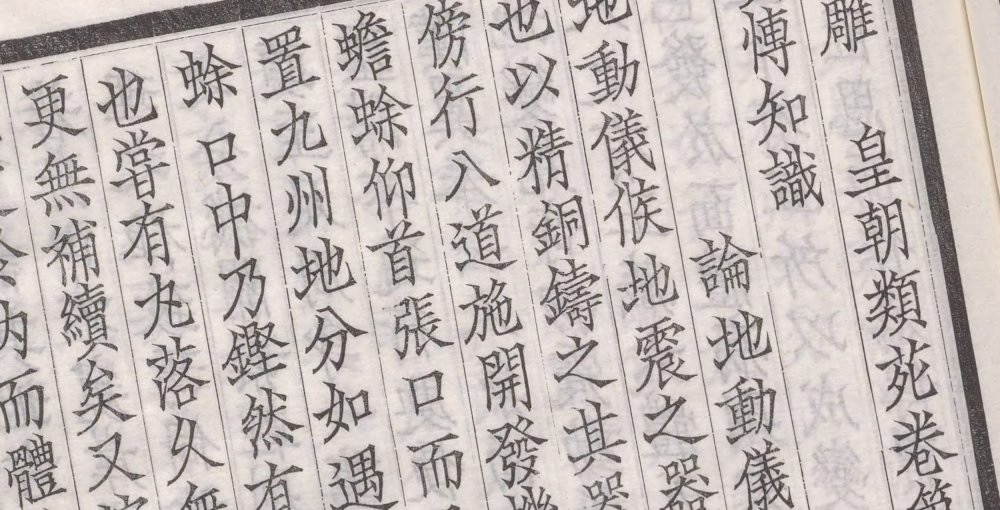 雕 皇朝類苑卷第
博知識 論地動儀
地動儀候地震之器
也以精銅鑄之其器
傍行八道施開發機
蟾蜍仰首張口而
置九州地分如遇
蜍口中乃鏗然有
也嘗有丸落久無
更無補續矣又
内而體